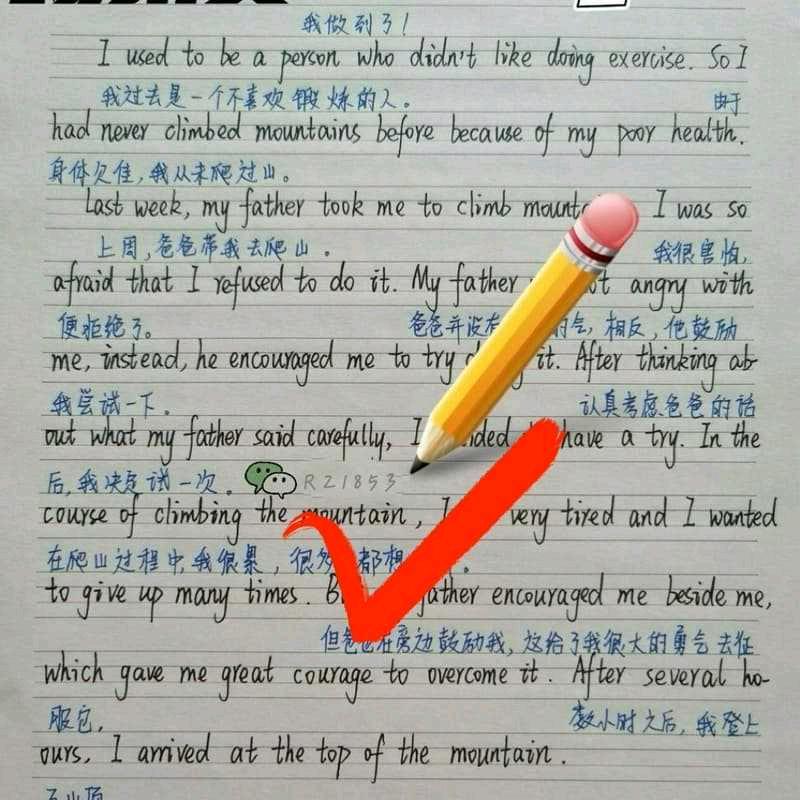 我做到了！
I used to be a person who didn't like doing exercise. So I
我过去是一个不喜欢锻炼的人。 由于
had never climbed mountains before because of my poor health.
身体欠佳，我从未爬过山。
Last week, my father took me to climb I was so
上周，爸爸带我去爬山。 我很害怕，
afraid that I refused to do it. My father angry with
便拒绝了。 爸爸并没有 的气，相反，他鼓励
me, instead, he encouraged me to try it. After thinking ab-
我尝试一下。 认真考虑爸爸的话
out what my father said carefully, I have a try. In the
后，我决定试一次。
RZ1853
course of climbing the mountain, I very tired and I wanted
在爬山过程中，我很累，很多 都想
to give up many times. father encouraged me beside me,
但爸爸在旁边鼓励我，这给了我很大的勇气去征
which gave me great courage to overcome it. After several ho-
服它。 数小时之后，我登上
ours, I arrived at the top of the mountain.
了山顶